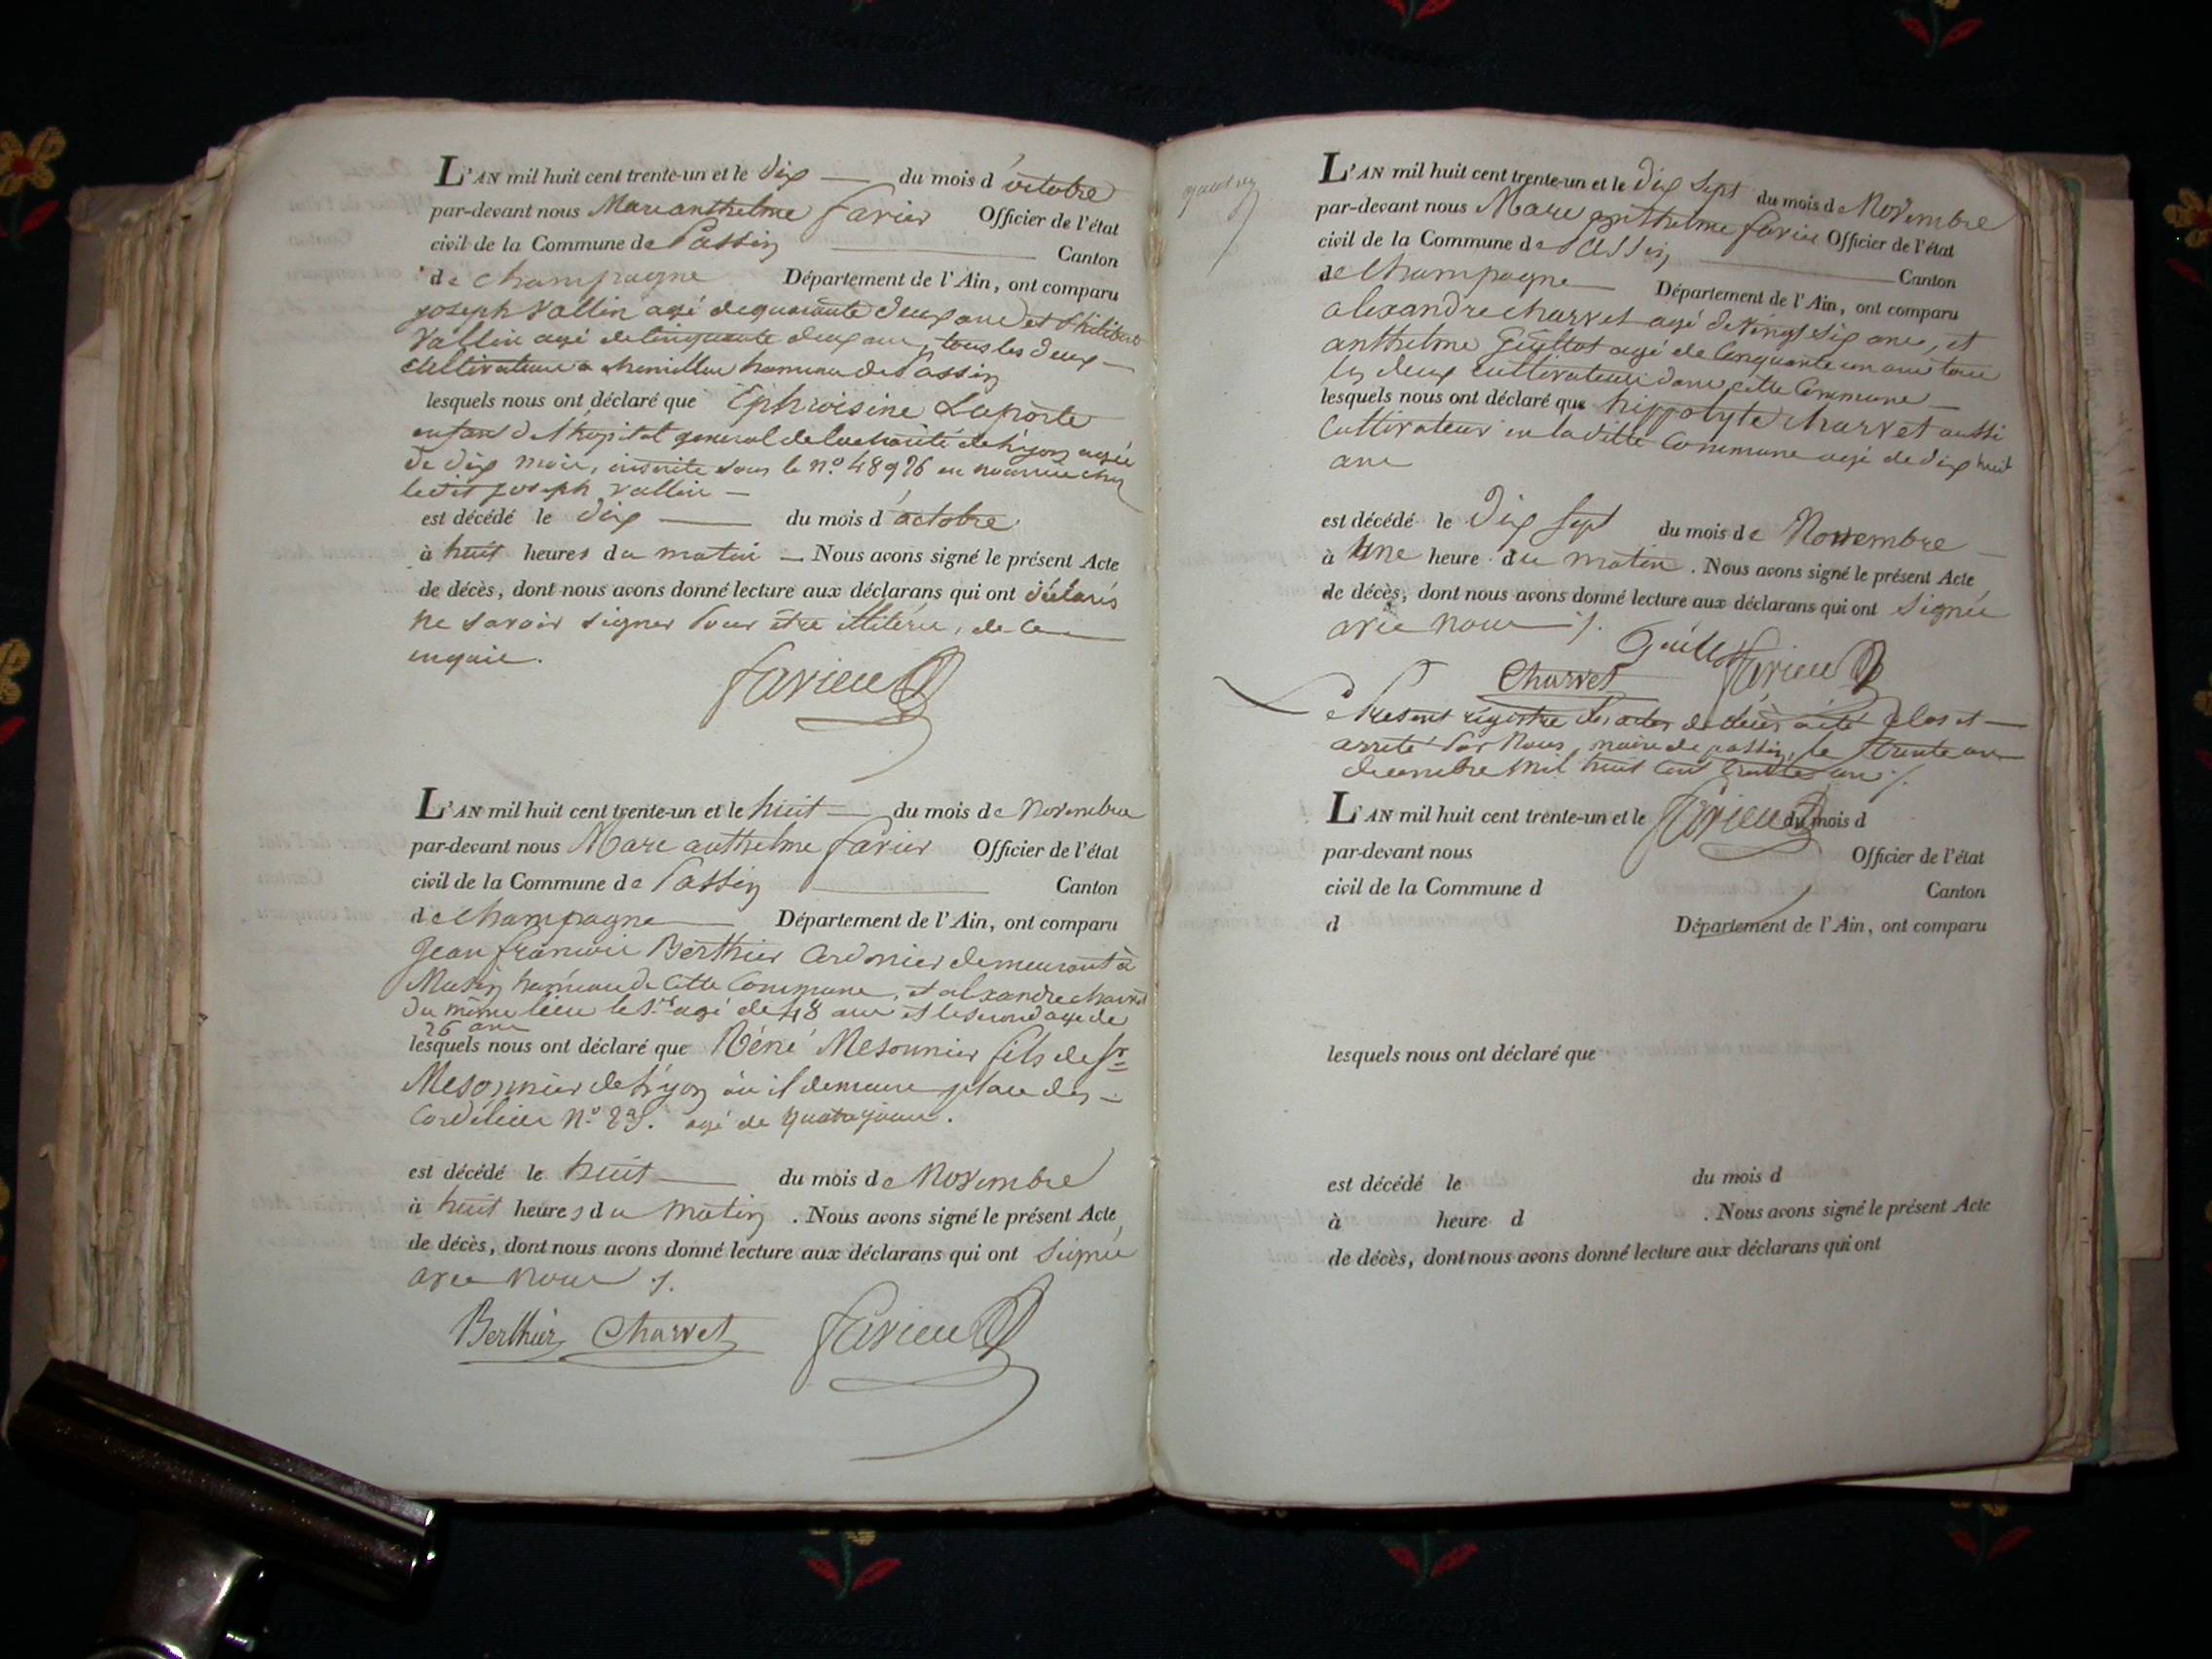 L'AN mil huit cent trente-un et le dix du mois d'octobre
par-devant nous Marc anthelme favier Officier de l'état
civil de la Commune de Passin Canton
de champagne Département de l'Ain, ont comparu
joseph Vallin agé de quarante deux ans et Philibert
Vallin agé de Cinquante deux ans, tous les deux
Cultivateurs a hameau de Passin
lesquels nous ont déclaré que Ephroisine Laporte
enfant de l'hopital general de la charité de Lyon agée
de dix mois, inscrite sous le n.º 48976 en nourrice chez
ledit joseph Vallin
est décédé le dix du mois d'octobre
à huit heures du matin Nous avons signé le présent Acte
de décès, dont nous avons donné lecture aux déclarans qui ont déclarés
ne savoir signer pour être illitéré, de ce
enquis.
favier
L'AN mil huit cent trente-un et le huit du mois de Novembre
par-devant nous Marc anthelme favier Officier de l'état
civil de la Commune de Passin Canton
de champagne Département de l'Ain, ont comparu
Jean françois Berthier Cordonier demeurant à
Musin hameau de Cette Commune, et alexandre charvet
du même lieu le 1.er agé de 48 ans et le second agé de
26 ans
lesquels nous ont déclaré que Réné Mesonnier fils de Sr
Mesonnier de Lyon où il demeure place des
Cordeliers N.º agé de quatre jours.
est décédé le huit du mois de Novembre
à huit heures du matin . Nous avons signé le présent Acte
de décès, dont nous avons donné lecture aux déclarans qui ont Signé
avec nous
Berthier Charvet favier
L'AN mil huit cent trente-un et le dix Sept du mois de Novembre
par-devant nous Marc anthelme favier Officier de l'état
civil de la Commune de Passin Canton
de Champagne Département de l'Ain, ont comparu
alexandre charvet agé de vingt six ans, et
anthelme Guillot agé de Cinquante un ans tous
les deux cultivateurs dans cette Commune
lesquels nous ont déclaré que hippolyte charvet aussi
Cultivateur en la dite Commune agé de dix huit
ans
est décédé le dix sept du mois de Novembre
à Une heure du matin . Nous avons signé le présent Acte
de décès, dont nous avons donné lecture aux déclarans qui ont Signé
avec nous
Guillot
Charvet favier
Le Present régistre des actes de décès a été Clos et
arreté Par Nous, maire de passin, le trente un
decembre mil huit cent trente un
L'AN mil huit cent trente-un et le favier du mois d
par-devant nous Officier de l'état
civil de la Commune d Canton
d Département de l'Ain, ont comparu
lesquels nous ont déclaré que
est décédé le du mois d
à heure d . Nous avons signé le présent Acte
de décès, dont nous avons donné lecture aux déclarans qui ont